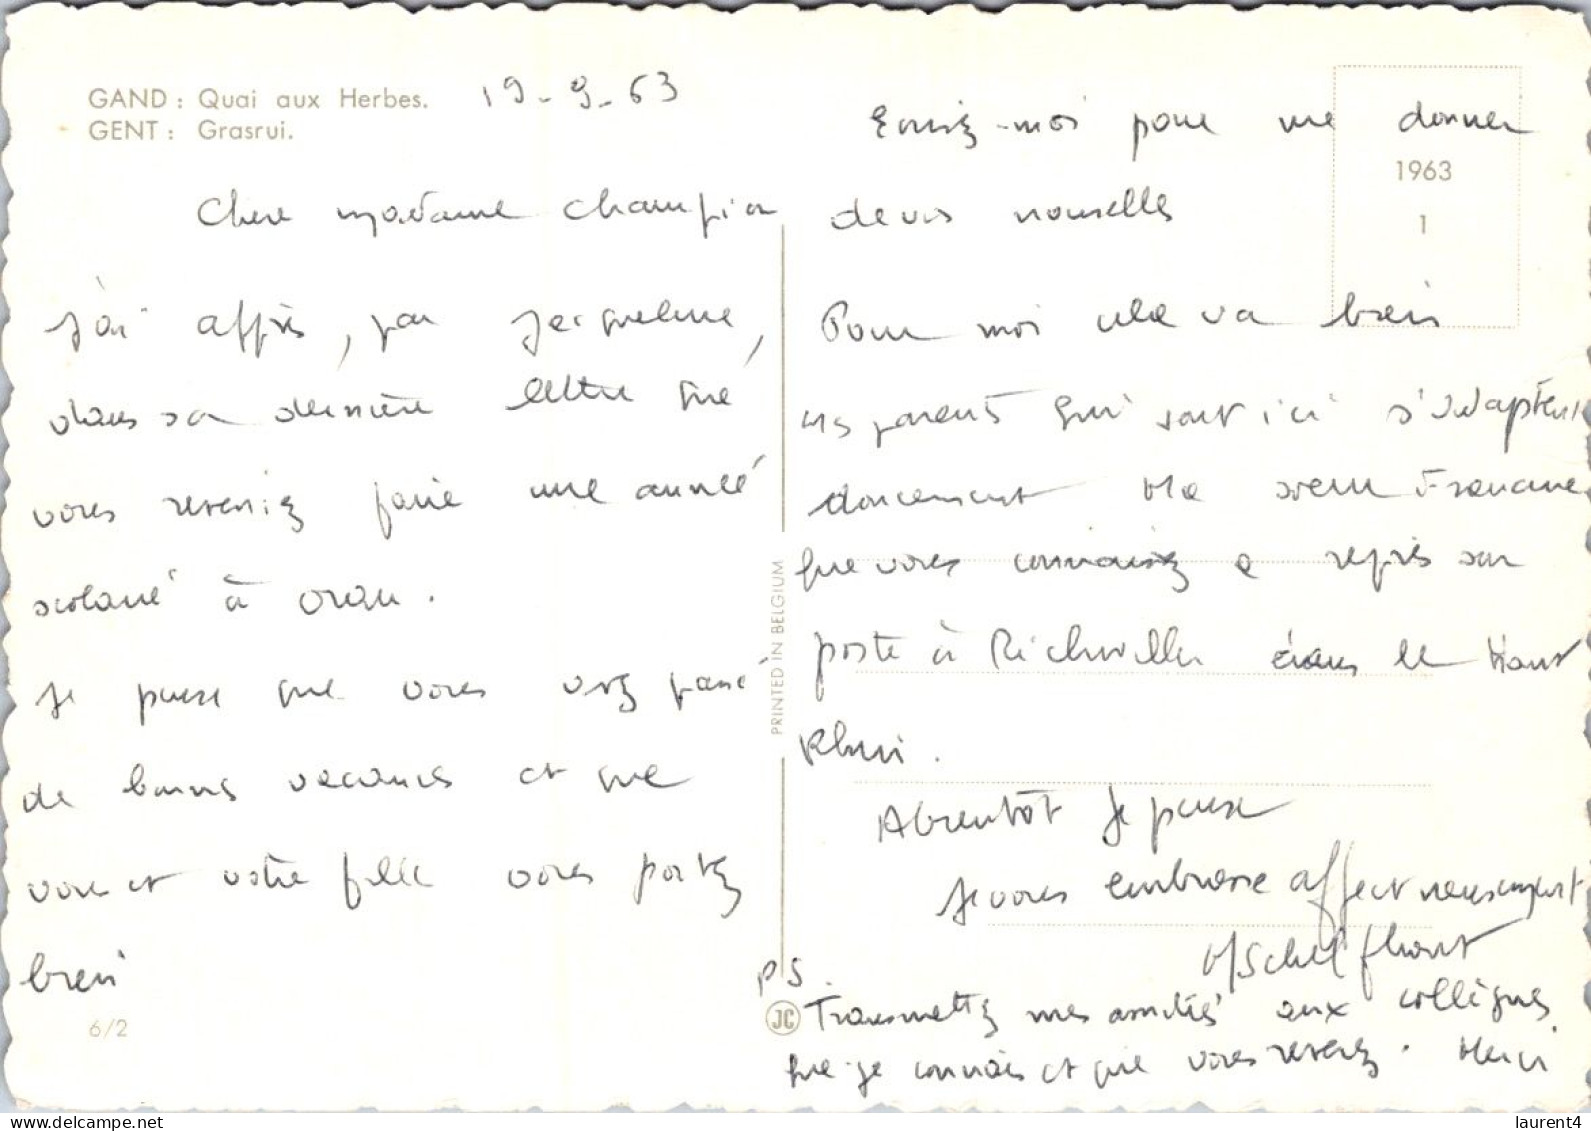 GAND : Quai aux Herbes.
GENT : Grasrui.
19-9-63
Chere madame Champion
J'ai appris, par Jacqueline,
dans sa dernière lettre que
vous reveniez faire une année
scolaire à Oran.
Je pense que vous avez passé
de bonnes vacances et que
vous et votre fille vous portez
bien
6/2
PRINTED IN BELGIUM
Ecrivez-moi pour me donner
de vos nouvelles
1963
1
Pour moi cela va bien
mes parents qui sont ici s'adaptent
doucement Ma soeur Francine
que vous connaissez a repris son
poste à Richwiller dans le Haut
Rhin.
A bientôt je pense
Je vous embrasse affectueusement
PS.
JC
Transmettez mes amitiés aux collègues
que je connais et que vous reverrez. Merci
laurent4